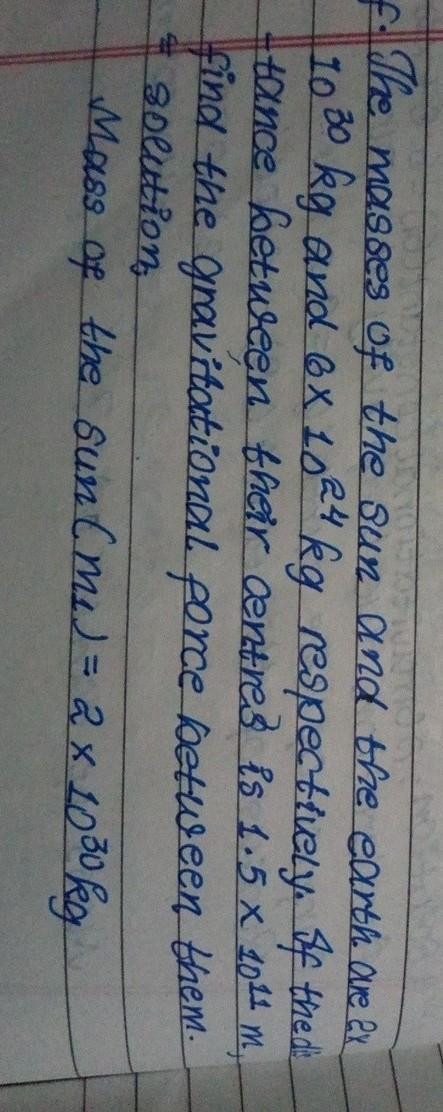 f. The masses of the sun and the earth are 2x
10³⁰ kg and 6 x 10²⁴ kg respectively. If the dis
-tance between their centres is 1.5 x 10¹¹ m,
find the gravitational force between them.
= solution,
Mass of the sun (m₁) = 2 x 10³⁰ kg